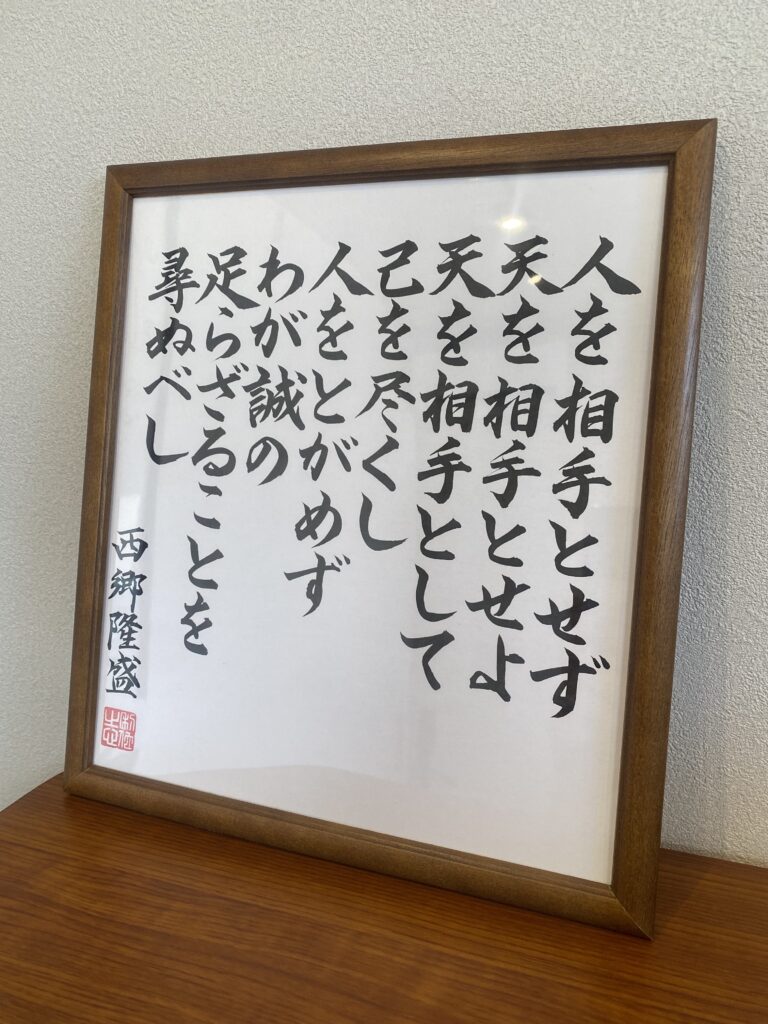 人を相手とせず
天を相手とせよ
天を相手として
己を尽くし
人をとがめず
わが誠の
足らざることを
尋ぬべし
西郷隆盛